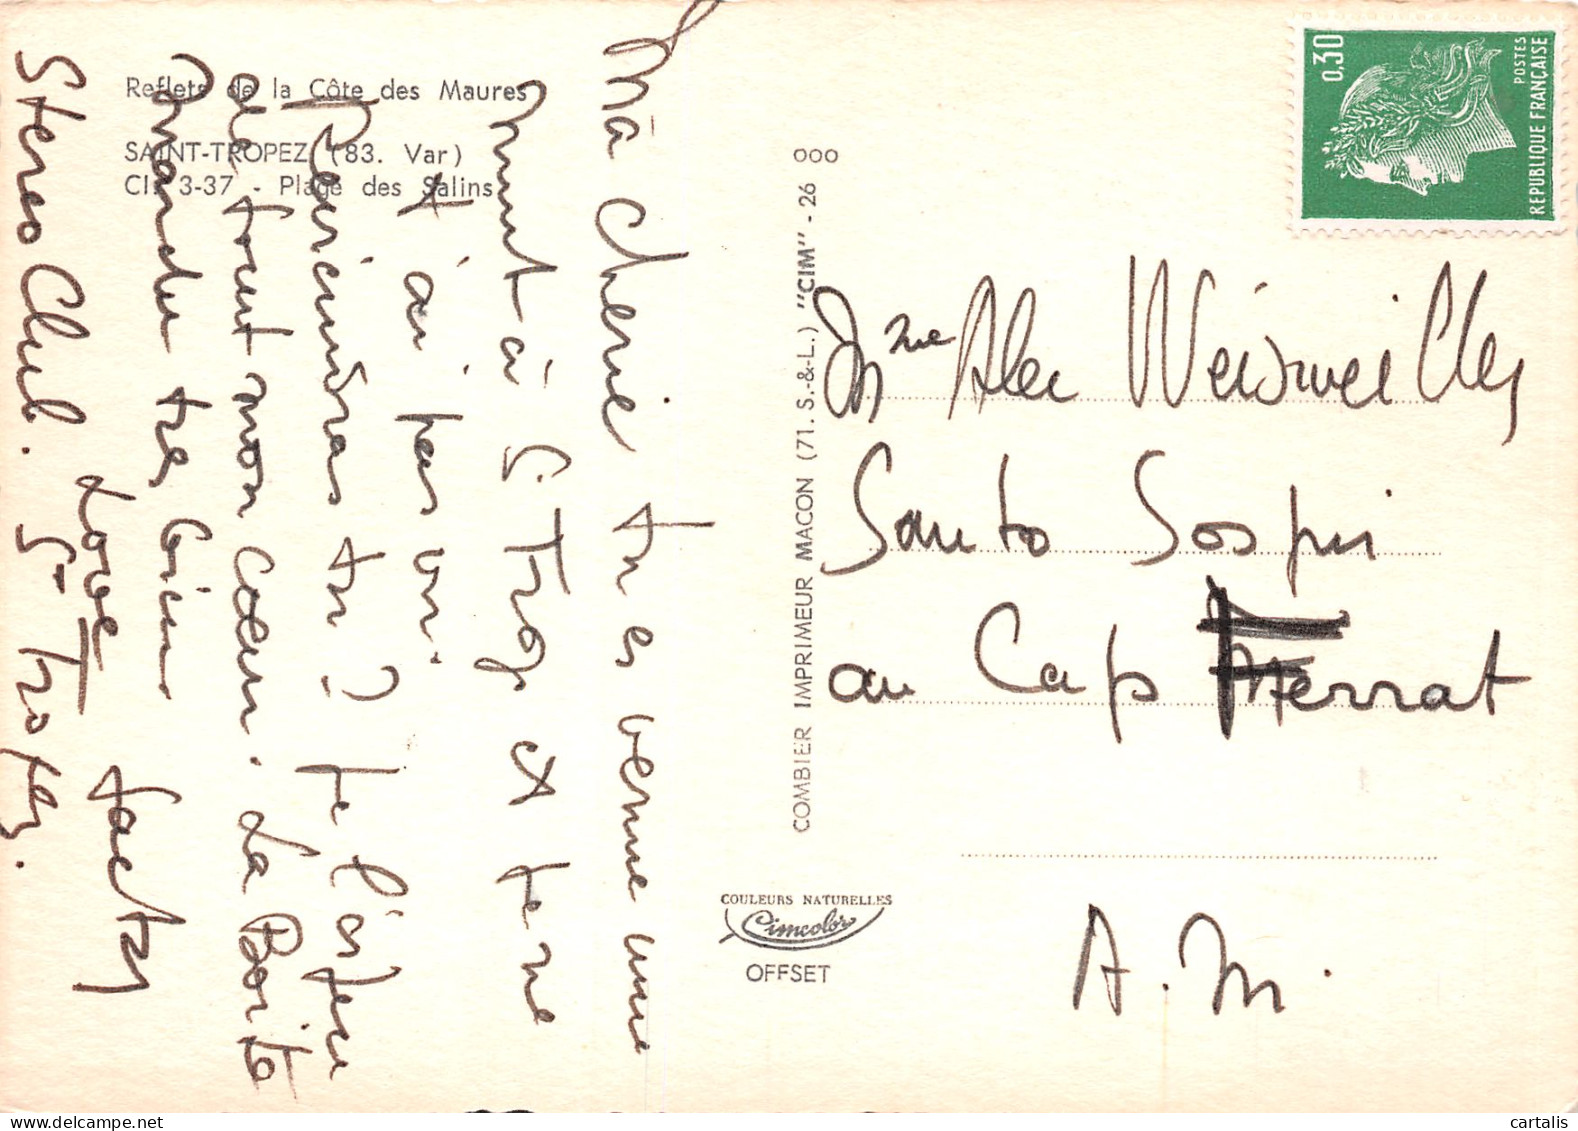 Reflets de la Côte des Maures
SAINT-TROPEZ (83. Var)
CI. 3-37 - Plage des Salins
Ma cherie tu es venue une
nuit à S. Trop et je ne
t'ai pas vu.
Reviendras tu? je l'espere
de tout mon cœur. La Boite
marche tres bien
Love Jacky
Stereo Club. St Tropez.
COMBIER IMPRIMEUR MACON (71. S.-&-L.) "CIM" - 26 000
COULEURS NATURELLES
Cimcolor
OFFSET
0,30
POSTES
REPUBLIQUE FRANÇAISE
Mme Alec Weisweiller
Santo Sospir
au Cap Ferrat
A. M.
cartalis